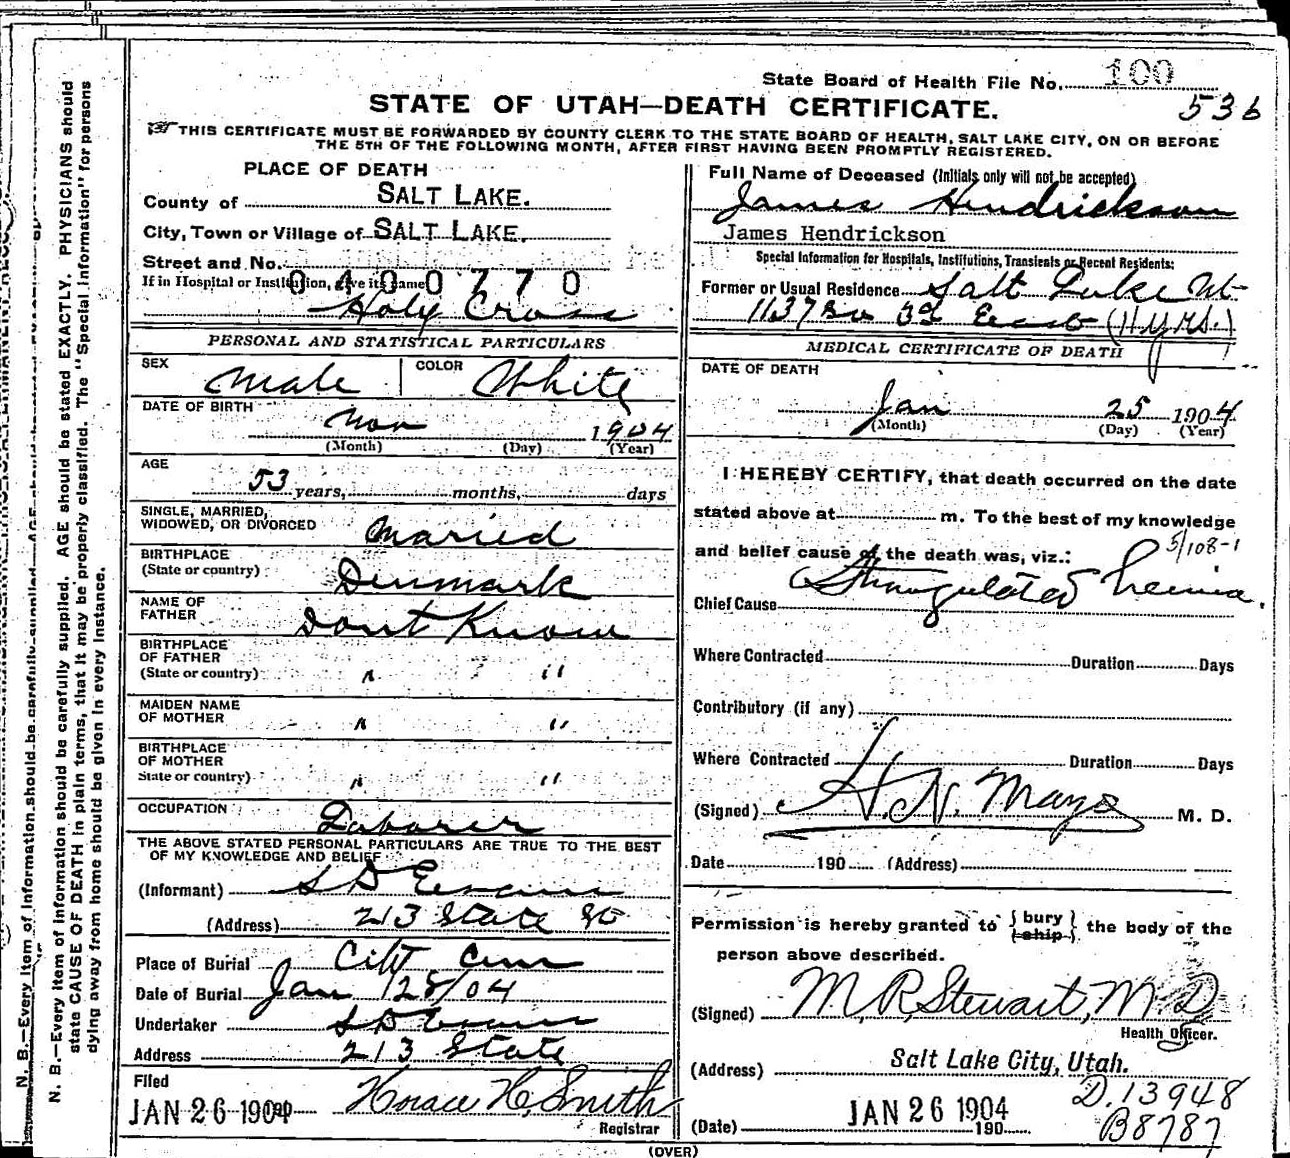 State Board of Health File No. 100
536
STATE OF UTAH—DEATH CERTIFICATE.
THIS CERTIFICATE MUST BE FORWARDED BY COUNTY CLERK TO THE STATE BOARD OF HEALTH, SALT LAKE CITY, ON OR BEFORE
THE 5TH OF THE FOLLOWING MONTH, AFTER FIRST HAVING BEEN PROMPTLY REGISTERED.
PLACE OF DEATH
County of SALT LAKE.
City, Town or Village of SALT LAKE.
Street and No.
0400770
If in Hospital or Institution, give its name
Holy Cross
PERSONAL AND STATISTICAL PARTICULARS
SEX Male COLOR White
DATE OF BIRTH Nov 1904
(Month) (Day) (Year)
AGE
53 years, months, days
SINGLE, MARRIED,
WIDOWED, OR DIVORCED Maried
BIRTHPLACE
(State or country) Denmark
NAME OF
FATHER Dont Know
BIRTHPLACE
OF FATHER
(State or country) " "
MAIDEN NAME
OF MOTHER " "
BIRTHPLACE
OF MOTHER
State or country) " "
OCCUPATION Laborer
THE ABOVE STATED PERSONAL PARTICULARS ARE TRUE TO THE BEST
OF MY KNOWLEDGE AND BELIEF
(Informant) S D Evans
(Address) 213 State St
Place of Burial City Cem
Date of Burial Jan 28/04
Undertaker S D Evans
Address 213 State
Filed
JAN 26 190 Horace H. Smith
Registrar
Full Name of Deceased (Initials only will not be accepted)
James Hendrickson
James Hendrickson
Special Information for Hospitals, Institutions, Transients or Recent Residents:
Former or Usual Residence Salt Lake Ut
1137 So 3d East (11 yrs.)
MEDICAL CERTIFICATE OF DEATH
DATE OF DEATH
Jan 25 1904
(Month) (Day) (Year)
I HEREBY CERTIFY, that death occurred on the date
stated above at m. To the best of my knowledge
and belief cause of the death was, viz.: 5/108-1
Chief Cause Strangulated hernia.
Where Contracted Duration Days
Contributory (if any)
Where Contracted Duration Days
(Signed) H. N. Mayo M. D.
Date 190 (Address)
Permission is hereby granted to { bury
ship } the body of the
person above described.
(Signed) M. R. Stewart, M D
Health Officer.
(Address) Salt Lake City, Utah.
D. 13948
JAN 26 1904
(Date) 190 B8787
(OVER)
N. B.—Every item of information should be carefully supplied. AGE should be stated EXACTLY. PHYSICIANS should
state CAUSE OF DEATH in plain terms, that it may be properly classified. The "Special Information" for persons
dying away from home should be given in every instance.
N. B.—Every item of information should be carefully supplied. AGE